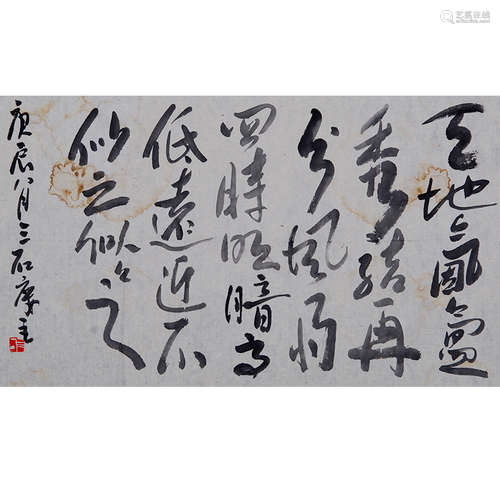 天地氤氲
秀結再
分风雨
四時明暗高
低遠近不
似之似々之
庚辰八月三石主